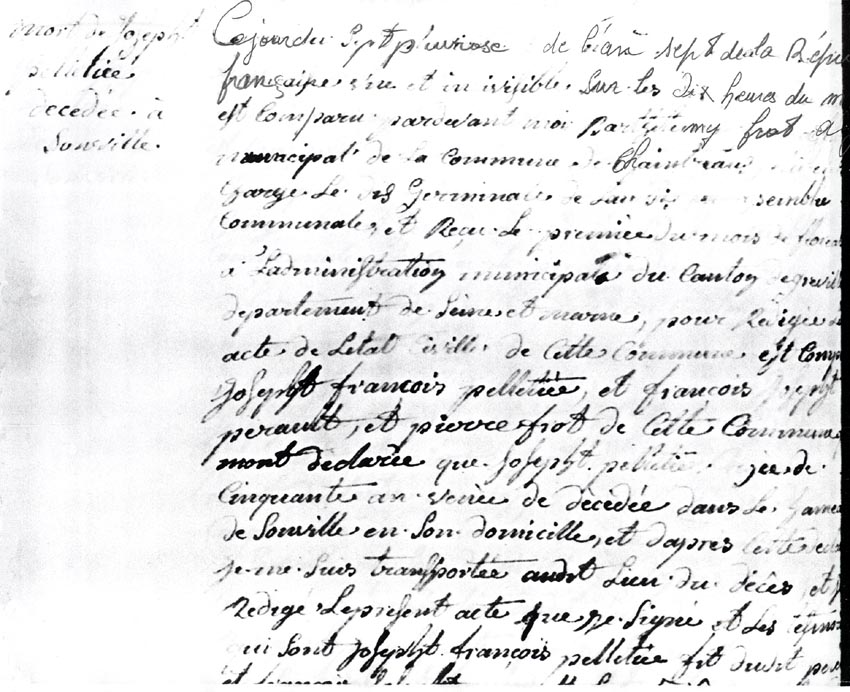 mort de Josepht
pelletiée
decedée à
Sonville.
Cejourdui Sept pluviose de l'an sept de la Répu
françaipe une et in ivisible Sur les Dix heures du m
est Comparu pardevant moi Bartelemy frot a
municipal de la Commune de Chaintréau,
Charge le dis Germinale de Lan Six semble
Communale, et Reçu Le premiée du mois de floreal
à Ladminiftration municipale du Canton de
departement de Seine et marne, pour Redigée
acte de Letat Civille de Cette Commune est Comp
Josepht françois pelletiée, et françois Josepht
perault, et pierre frot de Cette Commune,
mont declarée que Josepht pelletiée Agée de
Cinquante an venée de decedée dans Le hame
de Sonville en Son domicille, et dapres Cette
je me Suis transportée audit Lieu du décês, et
Redigé Le present acte que je Signé et Les témoi
qui Sont Josepht françois pelletiée
et francois